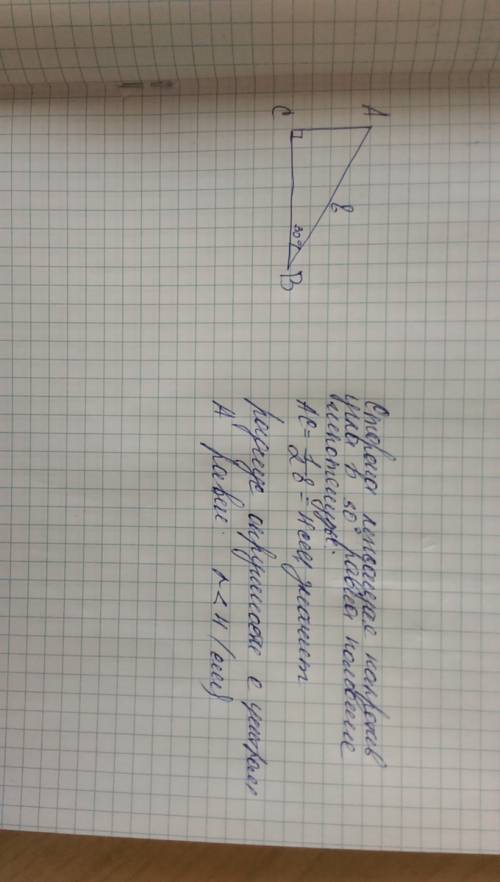 A
C
8
30°
B
Сторона лежащая напротив
угла в 30° равна половине
гипотенузы.
AC = 1/2 8 = 4 см значит
радиус окружности с центром
A равен r < 4 (см)